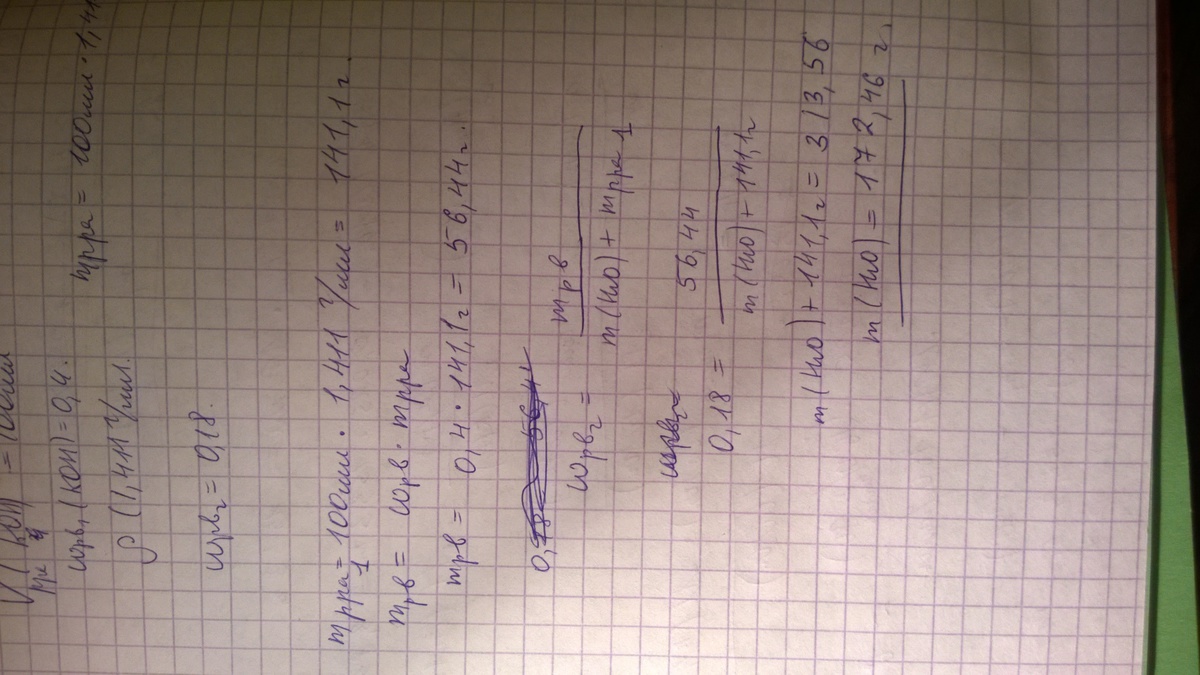 V р-ра (KOH) = 100мл
ωрв₁ (KOH) = 0,4.
mрра = 100мл · 1,41
ρ (1,411 г/мл.
ωрв₂ = 0,18.
mрра₁ = 100мл · 1,411 г/мл = 141,1 г.
mрв = ωрв · mрра
mрв = 0,4 · 141,1г = 56,44 г.
ωрв₂ = mрв / m(H₂O) + mрра 1
0,18 = 56,44 / m(H₂O) + 141,1г
m(H₂O) + 141,1г = 313,56
m(H₂O) = 172,46 г.